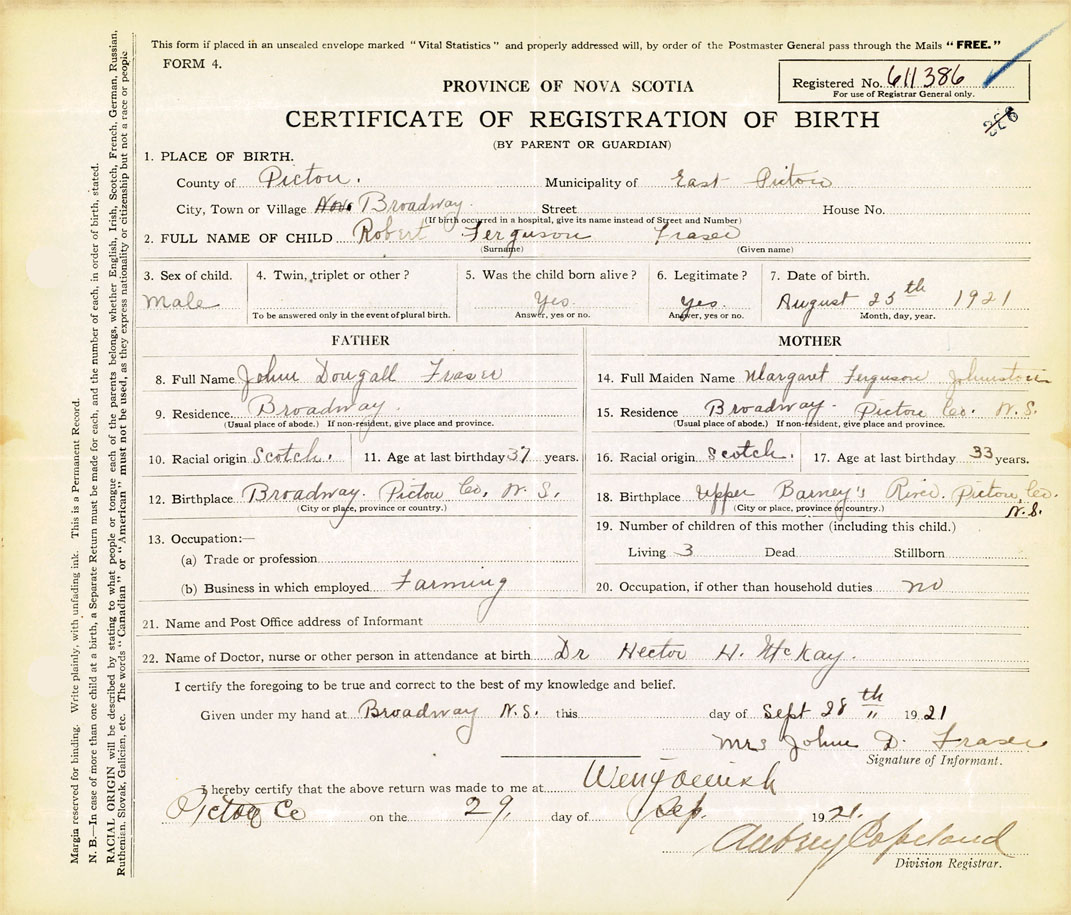 This form if placed in an unsealed envelope marked "Vital Statistics" and properly addressed will, by order of the Postmaster General pass through the Mails "FREE."
FORM 4.
Registered No. 611386
For use of Registrar General only.
PROVINCE OF NOVA SCOTIA
CERTIFICATE OF REGISTRATION OF BIRTH
(BY PARENT OR GUARDIAN)
1. PLACE OF BIRTH.
County of Pictou. Municipality of East Pictou
City, Town or Village Broadway. Street House No.
(If birth occurred in a hospital, give its name instead of Street and Number)
2. FULL NAME OF CHILD Robert Ferguson Fraser
(Surname) (Given name)
3. Sex of child. 4. Twin, triplet or other? 5. Was the child born alive? 6. Legitimate? 7. Date of birth.
Male Yes. Yes. August 25th 1921
To be answered only in the event of plural birth. Answer, yes or no. Answer, yes or no. Month, day, year.
FATHER MOTHER
8. Full Name John Dougall Fraser 14. Full Maiden Name Margaret Ferguson Johnston
9. Residence Broadway. 15. Residence Broadway. Pictou Co. N.S.
(Usual place of abode.) If non-resident, give place and province. (Usual place of abode.) If non-resident, give place and province.
10. Racial origin Scotch. 11. Age at last birthday 37 years. 16. Racial origin Scotch. 17. Age at last birthday 33 years.
12. Birthplace Broadway. Pictou Co. N.S. 18. Birthplace Upper Barney's River. Pictou Co. N.S.
(City or place, province or country.) (City or place, province or country.)
19. Number of children of this mother (including this child.)
13. Occupation:—
(a) Trade or profession Living 3 Dead Stillborn
(b) Business in which employed Farming 20. Occupation, if other than household duties no
21. Name and Post Office address of Informant
22. Name of Doctor, nurse or other person in attendance at birth Dr Hector H. McKay.
I certify the foregoing to be true and correct to the best of my knowledge and belief.
Given under my hand at Broadway N.S. this day of Sept 28th " 1921
Mrs John D. Fraser
Signature of Informant.
I hereby certify that the above return was made to me at
Pictou Co on the 29, day of Sep. 1921.
Aubrey Copeland
Division Registrar.
Margin reserved for binding. Write plainly, with unfading ink. This is a Permanent Record.
N. B.—In case of more than one child at a birth, a Separate Return must be made for each, and the number of each, in order of birth, stated.
RACIAL ORIGIN will be described by stating to what people or tongue each of the parents belongs, whether English, Irish, Scotch, French, German, Russian,
Ruthenian, Slovak, Galician, etc. The words "Canadian" or "American" must not be used, as they express nationality or citizenship but not a race or people